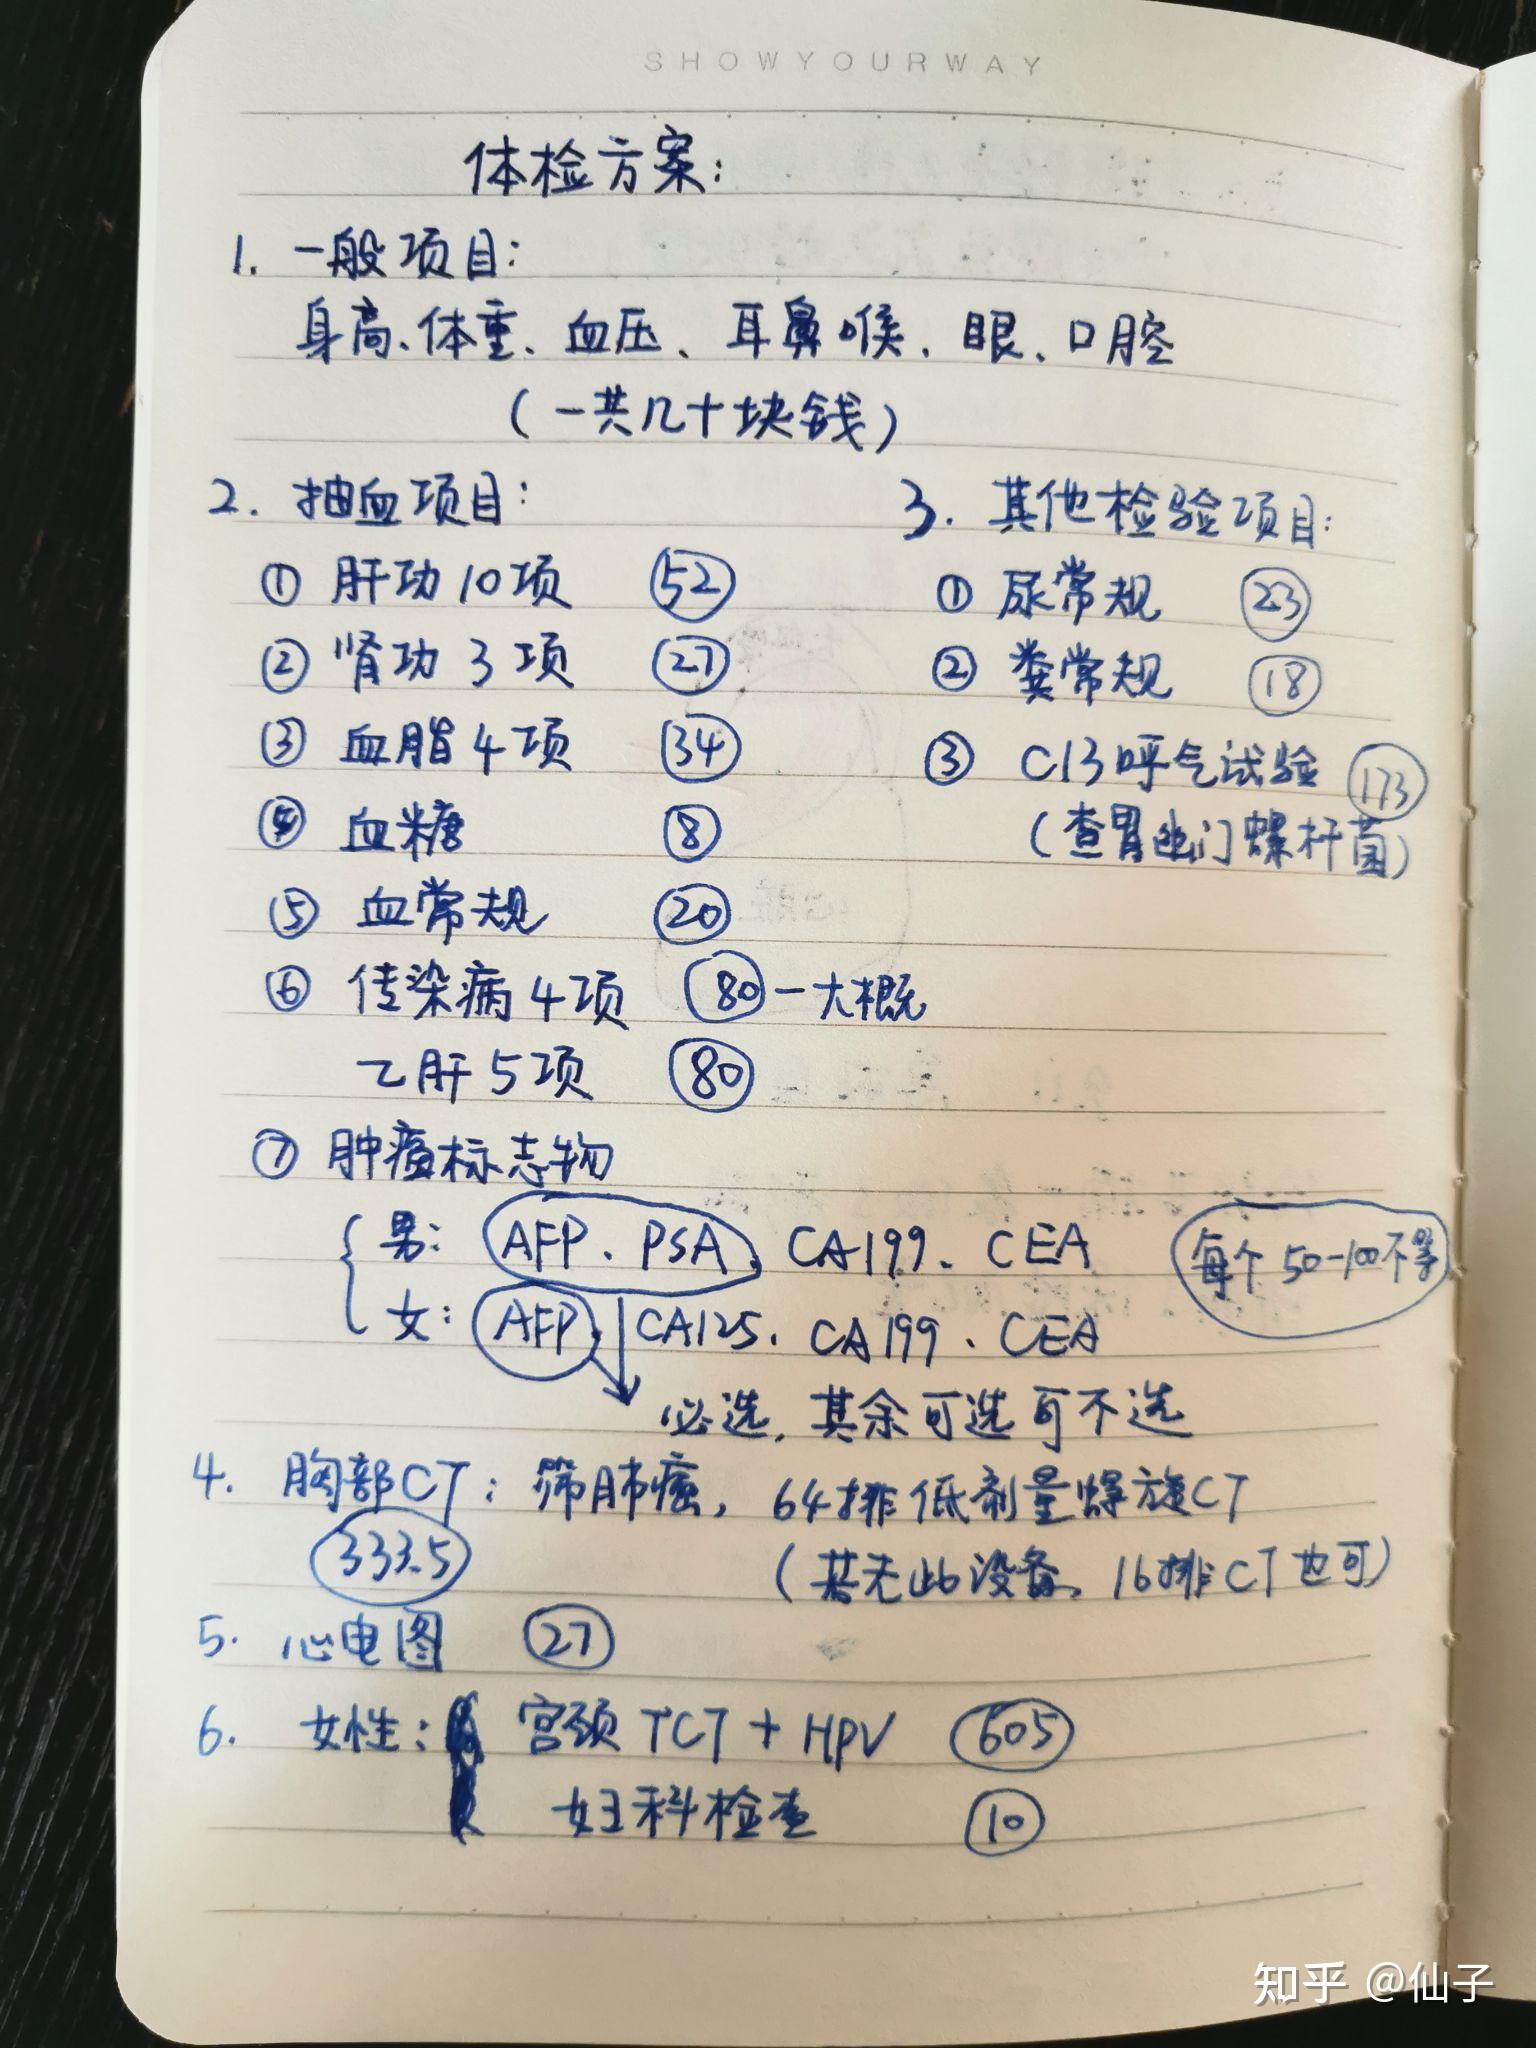 SHOWYOURWAY
体检方案:
1. 一般项目:
身高、体重、血压、耳鼻喉、眼、口腔
(一共几十块钱)
2. 抽血项目:
① 肝功10项 52
② 肾功3项 27
③ 血脂4项 34
④ 血糖 8
⑤ 血常规 20
⑥ 传染病4项 80-大概
乙肝5项 80
⑦ 肿瘤标志物
男: AFP、PSA、CA199、CEA
每个50-100不等
女: AFP、CA125、CA199、CEA
必选,其余可选可不选
3. 其他检验项目:
① 尿常规 23
② 粪常规 18
③ C13呼气试验 173
(查胃幽门螺杆菌)
4. 胸部CT: 筛肺癌, 64排低剂量螺旋CT
333.5
(若无此设备、16排CT也可)
5. 心电图 27
6. 女性: 宫颈TCT+HPV 605
妇科检查 10
知乎 @仙子